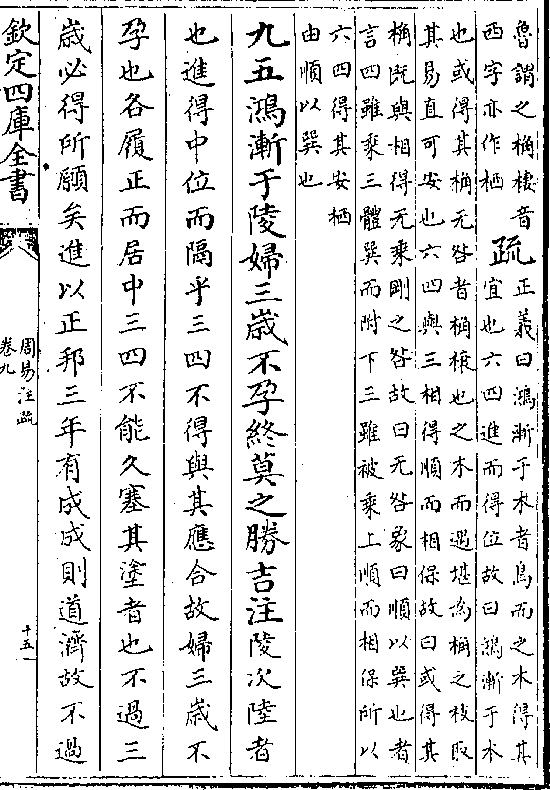 魯謂之桷棲音
西字亦作栖
疏
正義曰鴻漸于木者鳥而之木得其
宜也六四進而得位故曰鴻漸于木
也或得其桷无咎者桷榱也之木而遇堪為桷之枝取
其易直可安也六四與三相得順而相保故曰或得其
桷既與相得无乘剛之咎故曰无咎象曰順以巽也者
言四雖乘三體巽而附下三雖被乘上順而相保所以
六四得其安栖
由順以巽也
九五鴻漸于陵婦三歲不孕終莫之勝吉注陵次陸者
也進得中位而隔乎三四不得與其應合故婦三歲不
孕也各履正而居中三四不能久塞其塗者也不過三
歲必得所願矣進以正邦三年有成成則道濟故不過
欽定四庫全書
周易注疏
卷九
十五